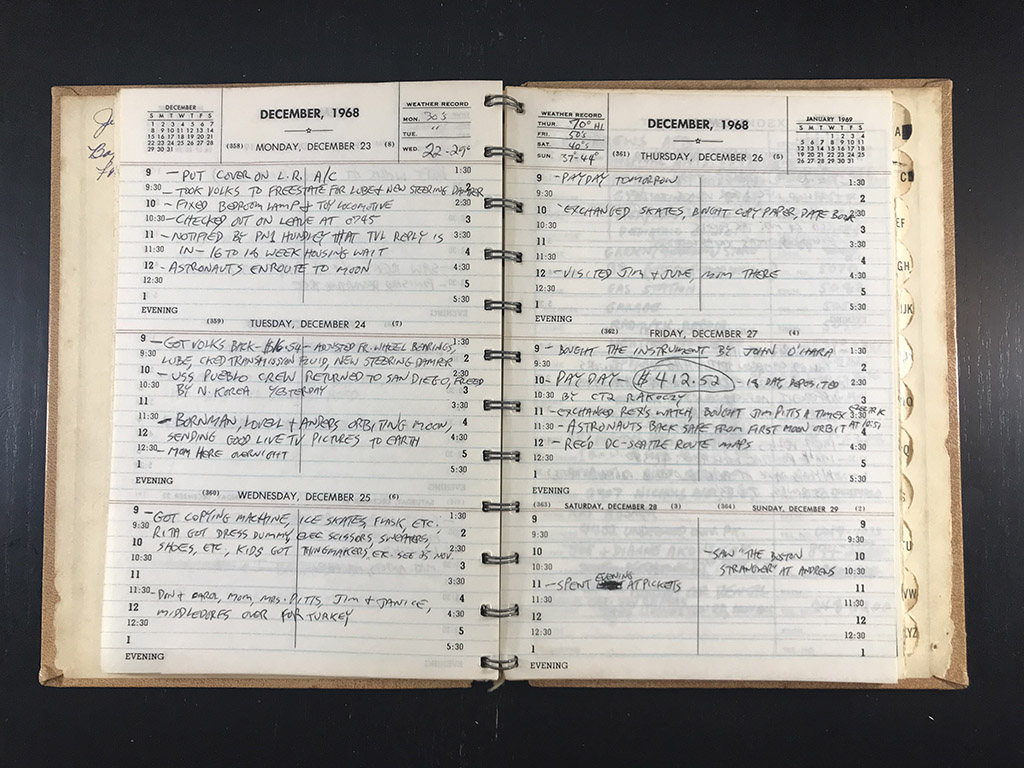 DECEMBER
S M T W T F S
1 2 3 4 5 6 7
8 9 10 11 12 13 14
15 16 17 18 19 20 21
22 23 24 25 26 27 28
29 30 31
DECEMBER, 1968
WEATHER RECORD
MON. 30'S
TUE. "
WED. 22-29°
(358) MONDAY, DECEMBER 23 (8)
9 - PUT COVER ON L.R. A/C 1:30
9:30 - TOOK VOLKS TO FREESTATE FOR LUBE & NEW STEERING DAMPER 2
10 - FIXED BEDROOM LAMP & TOY LOCOMOTIVE 2:30
10:30 - CHECKED OUT ON LEAVE AT 0745 3
11 - NOTIFIED BY PN1 HUNDLEY THAT TVL REPLY IS 3:30
11:30 IN - 16 TO 18 WEEK HOUSING WAIT 4
12 - ASTRONAUTS ENROUTE TO MOON 4:30
12:30 5
1 5:30
EVENING
(359) TUESDAY, DECEMBER 24 (7)
9 - GOT VOLKS BACK - $16.54 - ADJUSTED FR. WHEEL BEARINGS, 1:30
9:30 LUBE, CKED TRANSMISSION FLUID, NEW STEERING DAMPER 2
10 - USS PUEBLO CREW RETURNED TO SAN DIEGO, FREED 2:30
10:30 BY N. KOREA YESTERDAY 3
11 3:30
11:30 - BORNMAN, LOVELL & ANDERS ORBITING MOON, 4
12 SENDING GOOD LIVE TV PICTURES TO EARTH 4:30
12:30 - MOM HERE OVERNIGHT 5
1 5:30
EVENING
(360) WEDNESDAY, DECEMBER 25 (6)
9 - GOT COPYING MACHINE, ICE SKATES, FLASK, ETC. 1:30
9:30 RITA GOT DRESS DUMMY, ELEC SCISSORS, SWEATERS, 2
10 SHOES, ETC, KIDS GOT THINGMAKERS, ETC - SEE NOV. 2:30
10:30 3
11 3:30
11:30 - DON & CAROL, MOM, MRS. PITTS, JIM & JANICE, 4
12 MIDDLEDORFS OVER FOR TURKEY 4:30
12:30 5
1 5:30
EVENING
WEATHER RECORD
THUR. 70° HI
FRI. 50'S
SAT. 40'S
SUN. 37-44°
DECEMBER, 1968
JANUARY 1969
S M T W T F S
1 2 3 4
5 6 7 8 9 10 11
12 13 14 15 16 17 18
19 20 21 22 23 24 25
26 27 28 29 30 31
(361) THURSDAY, DECEMBER 26 (5)
9 - PAYDAY TOMORROW 1:30
9:30 2
10 - EXCHANGED SKATES, BOUGHT COPY PAPER, DATE BOOK 2:30
10:30 3
11 3:30
11:30 4
12 - VISITED JIM & JUNE, MOM THERE 4:30
12:30 5
1 5:30
EVENING
(362) FRIDAY, DECEMBER 27 (4)
9 - BOUGHT THE INSTRUMENT BY JOHN O'HARA 1:30
9:30 2
10 - PAYDAY - $412.52 - 18 DAY, DEPOSITED 2:30
10:30 BY CT2 RAKOCZY 3
11 - EXCHANGED REX'S WATCH, BOUGHT JIM PITTS A TIMEX 3:30
11:30 - ASTRONAUTS BACK SAFE FROM FIRST MOON ORBIT AT 10:51 4
12 - REC'D DC-SEATTLE ROUTE MAPS 4:30
12:30 5
1 5:30
EVENING
(363) SATURDAY, DECEMBER 28 (3) (364) SUNDAY, DECEMBER 29 (2)
9 9
9:30 9:30
10 - SAW "THE BOSTON 10
10:30 STRANGLER" AT ANDREWS 10:30
11 - SPENT EVENING AT PICKETTS 11
11:30 11:30
12 12
12:30 12:30
1 1
EVENING
A
C
EF
GH
IJK
S
VW
XYZ